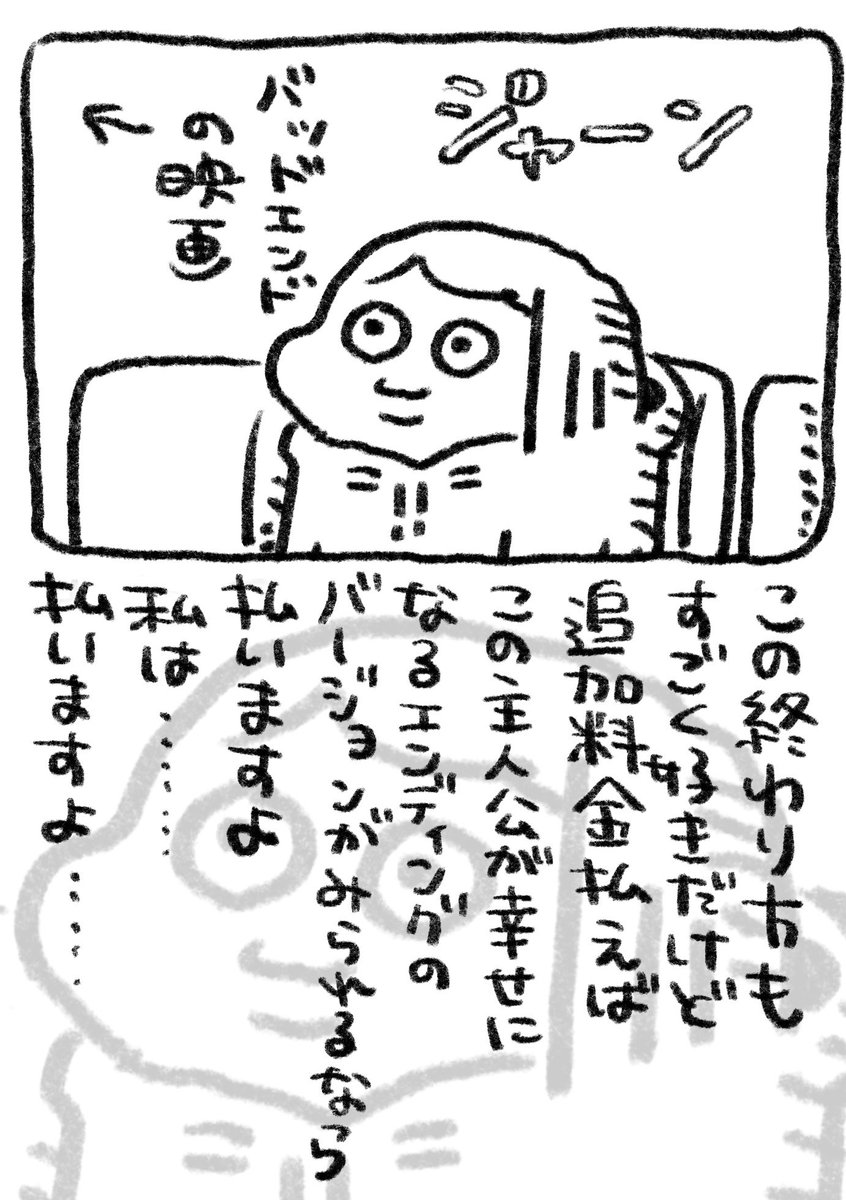 ジャーン
バッドエンド
の映画
この終わり方も
すごく好きだけど
追加料金払えば
この主人公が幸せに
なるエンディングの
バージョンがみられるなら
払いますよ
私は……
払いますよ……